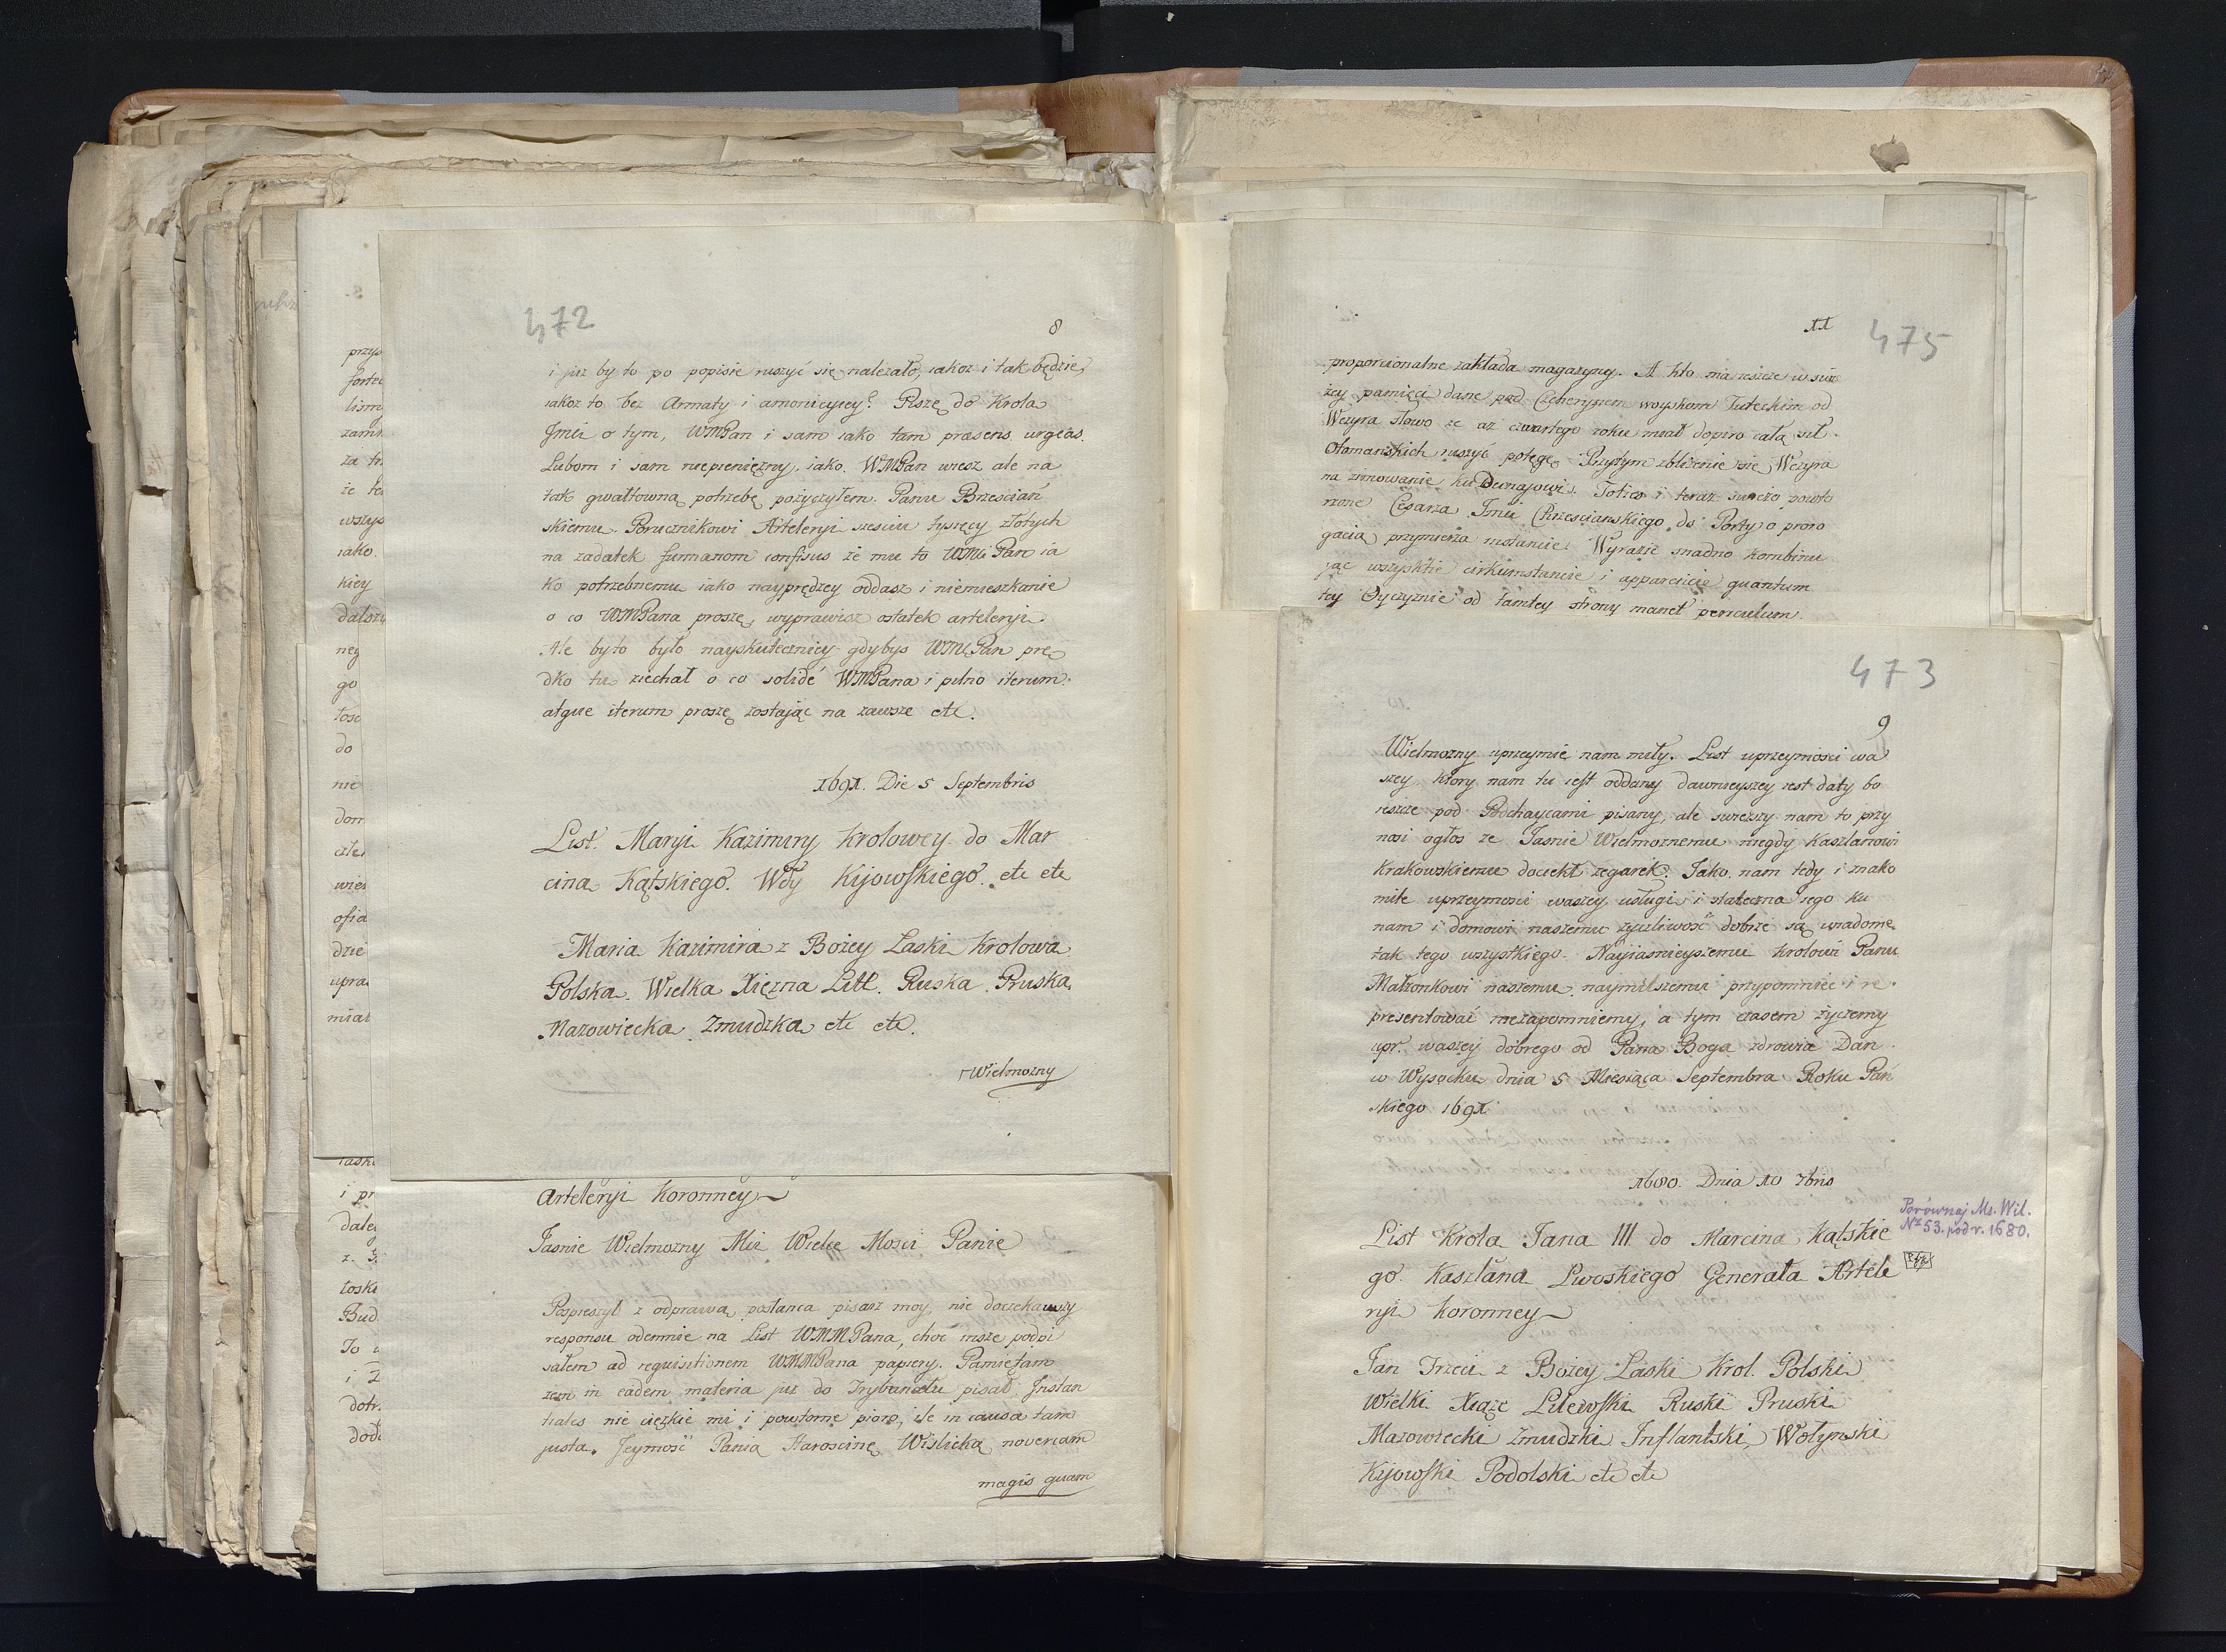 472
8
i już by to po popisie ruszyć się należało, iakoż i tak będzie,
iakoż to bez Armaty i amonicyiey? Piszę do Krola
Jmći o tym, WMPan i sam iako tam præsens urgeas.
Lubom i sam niepieniężny, iako WMPan wiesz ale na
tak gwałtowną potrzebę pożyczyłem Panu Brzescian
skiemu Porucznikowi Arteleryi sześciu tysięcy złotych
na zadatek furmanom confisus że mu to WMć Pan ia
ko potrzebnemu iako nayprędzey oddasz i niemieszkanie
o co WMPana proszę, wyprawisz ostatek arteleryi.
Ale by to było nayskuteczniey gdybys WMć Pan prę
dko tu ziechał o co solidé WMPana i pilno iterum
atque iterum proszę zostając na zawsze etc.
1691. Die 5 Septembris
List Maryi Kazimiry Krolowey do Mar
cina Kątskiego Wdy Kijowskiego etc etc
Maria Kazimira z Bożey Łaski Krolowa
Polska Wielka Xiężna Litt. Ruska Pruska
Mazowiecka Zmudzka etc etc.
Wielmożny
Arteleryi Koronney
Jaśnie Wielmożny Mći Wielce Mości Panie
Pospieszył z odprawą posłanca pisarz moy, nie doczekawszy
responsu odemnie na List WMMPana, choć insze podpi
sałem ad requisitionem WMMPana papiery. Pamiętam
żem in eadem materia już do Trybunału pisał. Instan
tiales nie cięzkie mi i powtorne pioro, ile in causa tam
justa. Jeymość Pania Starościnę Wislicką novercam
magis quam
11
475
proporcionalne zakłada magazyny. A kto ma ieszcze w świe
żey pamięci dane pod Cehrynem woyskom Tureckim od
Wezyra słowo że aż czwartego roku miał dopiro całą sił
Otomańskich ruszyć potęgę. Przytym zbliżenie się Wezyra
na zimowanie ku Dunajowi. Toties i teraz swieżo powto
rzone Cesarza Jmći Chrześcianskiego do Porty o proro
gacią przymierza instancie. Wyrazić snadno kombinu
jąc wszystkie cirkumstancie i apparencie quantum
tey Oyczyznie od tamtey strony manet periculum.
473
9
Wielmożny uprzeymie nam miły. List uprzeymości wa
szey ktory nam tu iest oddany dawnieyszey iest daty bo
ieszcze pod Podhaycami pisany, ale swieższy nam to przy
nosi ogłos że Jaśnie Wielmożnemu niegdy Kasztanowi
Krakowskiemu dociekł zegarek. Jako nam tedy i znako
mite uprzeymosci waszey usługi i stateczna iego ku
nam i domowi naszemu życzliwość dobrze są wiadome
tak tego wszystkiego Nayiaśnieyszemu Krolowi Panu
Małżonkowi naszemu naymilszemu przypomnieć i re
presentować niezapomniemy, a tym czasem życzemy
upr. waszey dobrego od Pana Boga zdrowia Dan
w Wysocku dnia 5 Miesiąca Septembra Roku Pań
skiego 1691
1680. Dnia 10 7bris
Porównaj Ms. Wil.
Nr 53. pod r. 1680.
List Krola Jana III do Marcina Kątskie
go Kasztana Lwoskiego Generała Artele
ryi Koronney
Jan Trzeci z Bożey Łaski Krol Polski
Wielki Xiąże Litewski Ruski Pruski
Mazowiecki Zmudzki Inflantski Wołynski
Kijowski Podolski etc etc